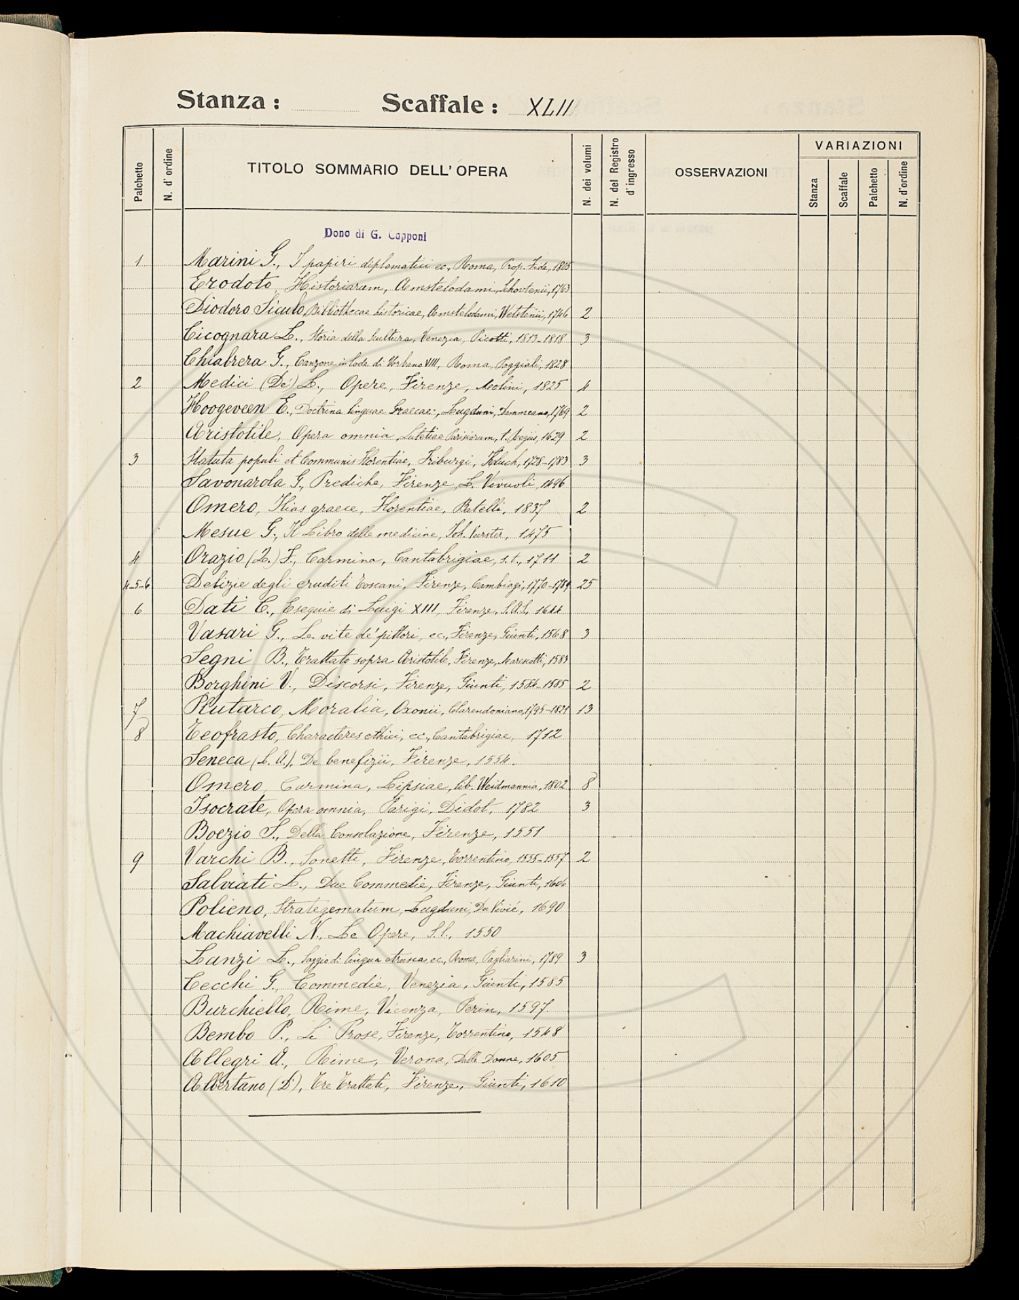 Stanza : Scaffale : XLII
Palchetto
N. d'ordine
TITOLO SOMMARIO DELL' OPERA
N. dei volumi
N. del Registro d'ingresso
OSSERVAZIONI
VARIAZIONI
Stanza
Scaffale
Palchetto
N. d'ordine
Dono di G. Capponi
1 Marini G., I papiri diplomatici ec, Roma, Prop. Fide, 1805
Erodoto, Historiarum, Amstelodami, Schovtenii, 1763
Diodoro Siculo, Bibliothecae historicae, Amstelodami, Wetstenii, 1746 2
Cicognara L., Storia della Scultura, Venezia, Picotti, 1813-1818 3
Chiabrera G., Canzone in lode di Urbano VIII, Roma, Poggiali, 1828
2 Medici (De') L., Opere, Firenze, Molini, 1825 4
Hoogeveen E., Doctrina linguae Graecae, Lugduni, Dammeano, 1769 2
Aristotile, Opera omnia, Lutetiae Parisiorum, t. regiis, 1629 2
3 Statuta populi et Communis Florentiae, Friburgi, Kluch, 1778-1783 3
Savonarola G., Prediche, Firenze, L. Vivuoli, 1496
Omero, Ilias graece, Florentiae, Batelli, 1837 2
Mesue G., Il Libro della medicina, 1475
4 Orazio (Q.) F., Carmina, Cantabrigiae, s.t., 1711 2
4-5-6 Delizie degli eruditi toscani, Firenze, Cambiagi, 1770-1789 25
6 Dati C., Esequie di Luigi XIII, Firenze, S.A.S., 1644
Vasari G., Le vite de' pittori, ec, Firenze, Giunti, 1568 3
Segni B., Trattato sopra Aristotile, Firenze, Marescotti, 1583
Borghini V., Discorsi, Firenze, Giunti, 1584-1585 2
7 Plutarco, Moralia, Oxonii, Clarendoniano, 1795-1821 13
8 Teofrasto, Characteres ethici, ec, Cantabrigiae, 1712
Seneca (L. A.), De benefizii, Firenze, 1554.
Omero, Carmina, Lipsiae, lib. Weidmannia, 1802 8
Isocrate, Opera omnia, Parigi, Didot, 1782 3
Boezio S., Della Consolazione, Firenze, 1551
9 Varchi B., Sonetti, Firenze, Torrentino, 1555-1557 2
Salviati L., Due Commedie, Firenze, Giunti, 1606
Polieno, Strategematum, Lugduni, Du Vivié, 1690
Machiavelli N., Le Opere, S.l., 1550
Lanzi L., Saggio di lingua etrusca, ec, Roma, Pagliarini, 1789 3
Cecchi G., Commedie, Venezia, Giunti, 1585
Burchiello, Rime, Vicenza, Perin, 1597.
Bembo P., Le Prose, Firenze, Torrentino, 1548
Allegri A., Rime, Verona, Dalle Donne, 1605
Albertano (D), Tre Trattati, Firenze, Giunti, 1610